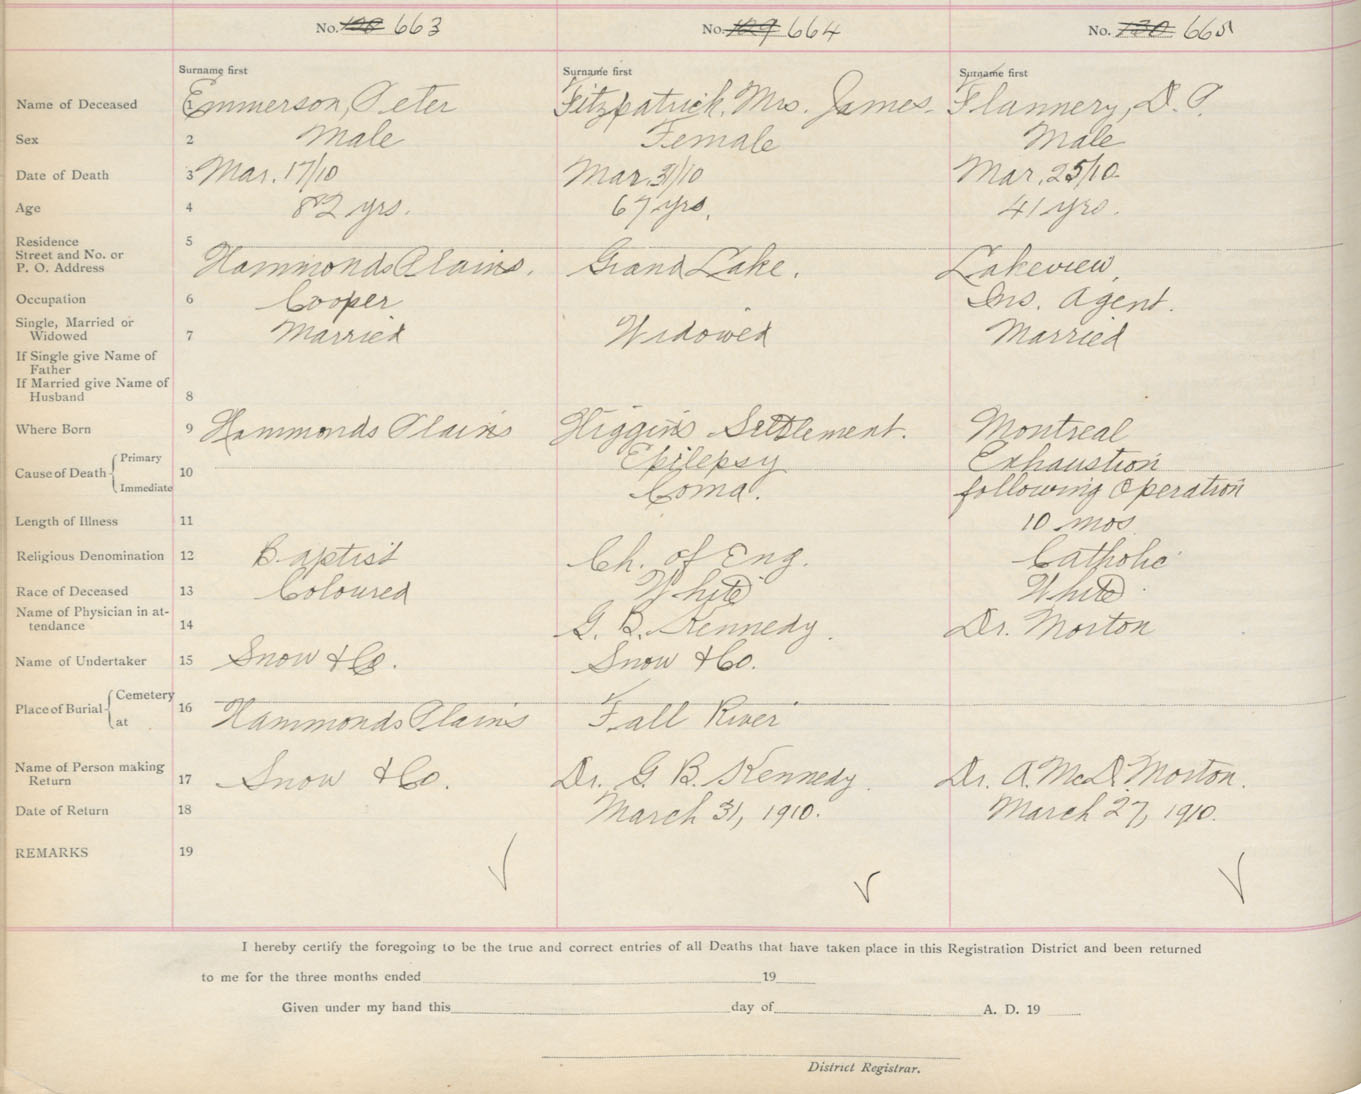 No. 128 663 No. 129 664 No. 130 665
Surname first Surname first Surname first
Name of Deceased 1 Emmerson, Peter Fitzpatrick, Mrs. James Flannery, D. P.
Sex 2 Male Female Male
Date of Death 3 Mar. 17/10 Mar. 31/10 Mar. 25/10
Age 4 82 yrs. 67 yrs. 41 yrs.
Residence 5
Street and No. or
P. O. Address Hammonds Plains. Grand Lake. Lakeview,
Occupation 6 Cooper Ins. Agent.
Single, Married or
Widowed 7 Married Widowed Married
If Single give Name of
Father
If Married give Name of
Husband 8
Where Born 9 Hammonds Plains Higgins Settlement. Montreal
Cause of Death { Primary 10 Epilepsy Exhaustion
Immediate Coma. following Operation
Length of Illness 11 10 mos
Religious Denomination 12 Baptist Ch. of Eng. Catholic
Race of Deceased 13 Coloured White White
Name of Physician in at-
tendance 14 G. B. Kennedy. Dr. Morton
Name of Undertaker 15 Snow & Co. Snow & Co.
Place of Burial { Cemetery 16
at Hammonds Plains Fall River
Name of Person making
Return 17 Snow & Co. Dr. G. B. Kennedy. Dr. A. McD. Morton.
Date of Return 18 March 31, 1910. March 27, 1910.
REMARKS 19
I hereby certify the foregoing to be the true and correct entries of all Deaths that have taken place in this Registration District and been returned
to me for the three months ended 19
Given under my hand this day of A. D. 19
District Registrar.